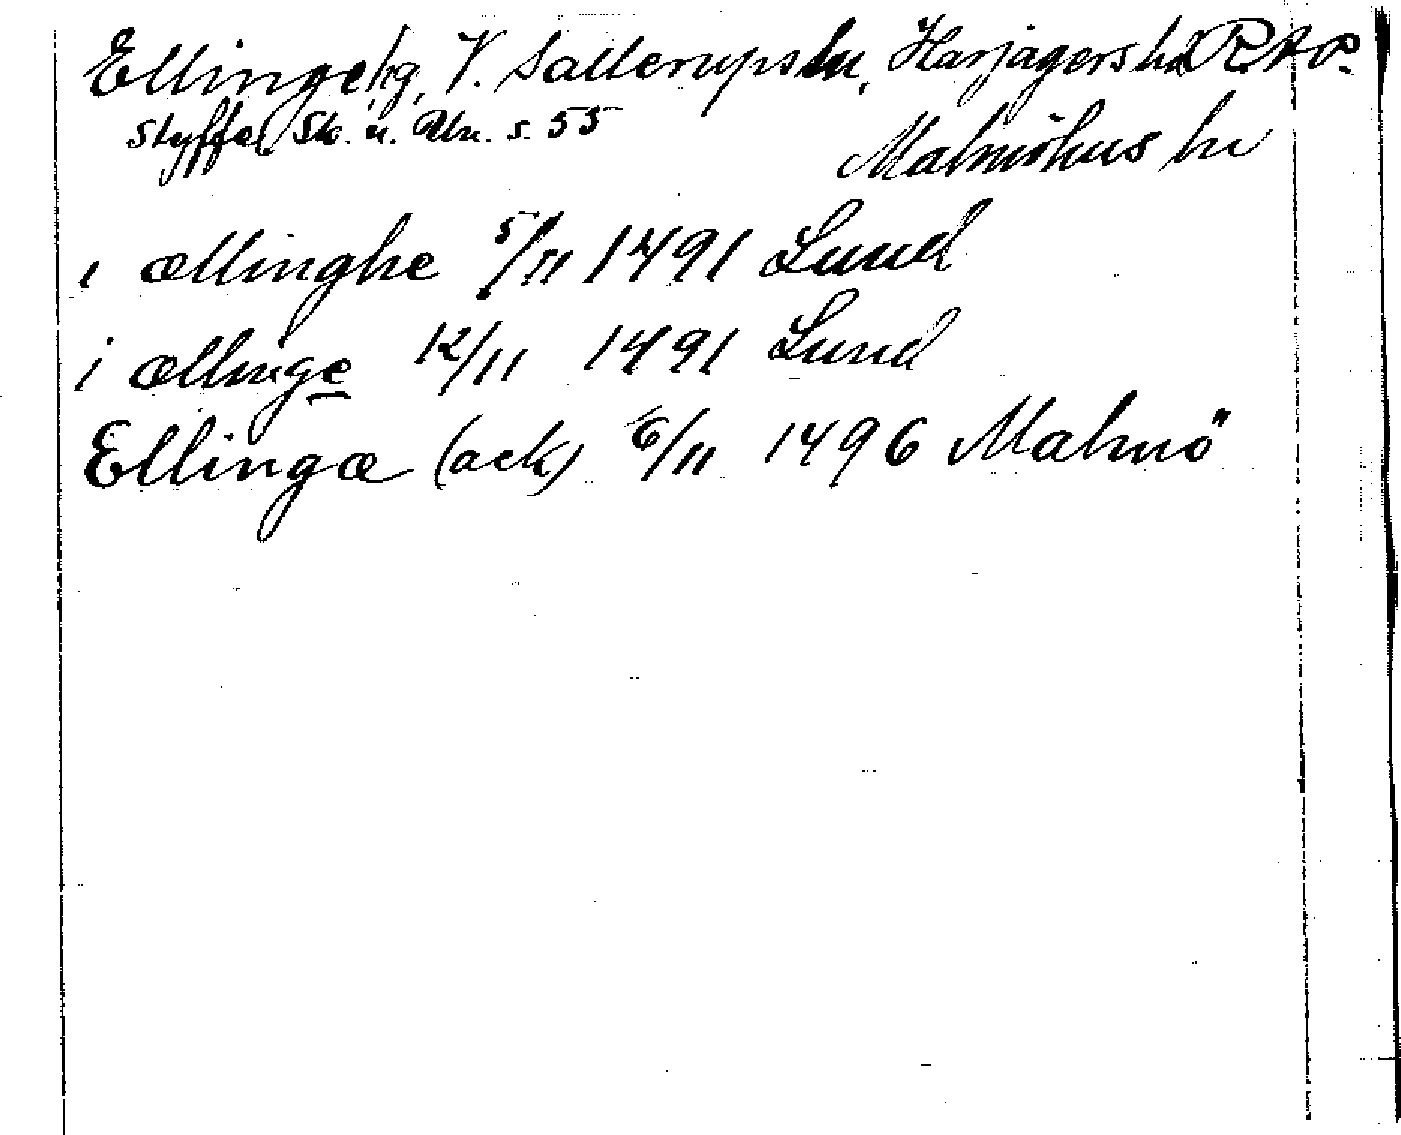 Ellinge hg, V. Sallerups sn, Harjagers hd RAP.
Styffe, Sk. u. Un. s. 55
Malmöhus ln
i ællinghe 5/11 1491 Lund
i ællinge 12/11 1491 Lund
Ellingæ (ack) 6/11 1496 Malmö